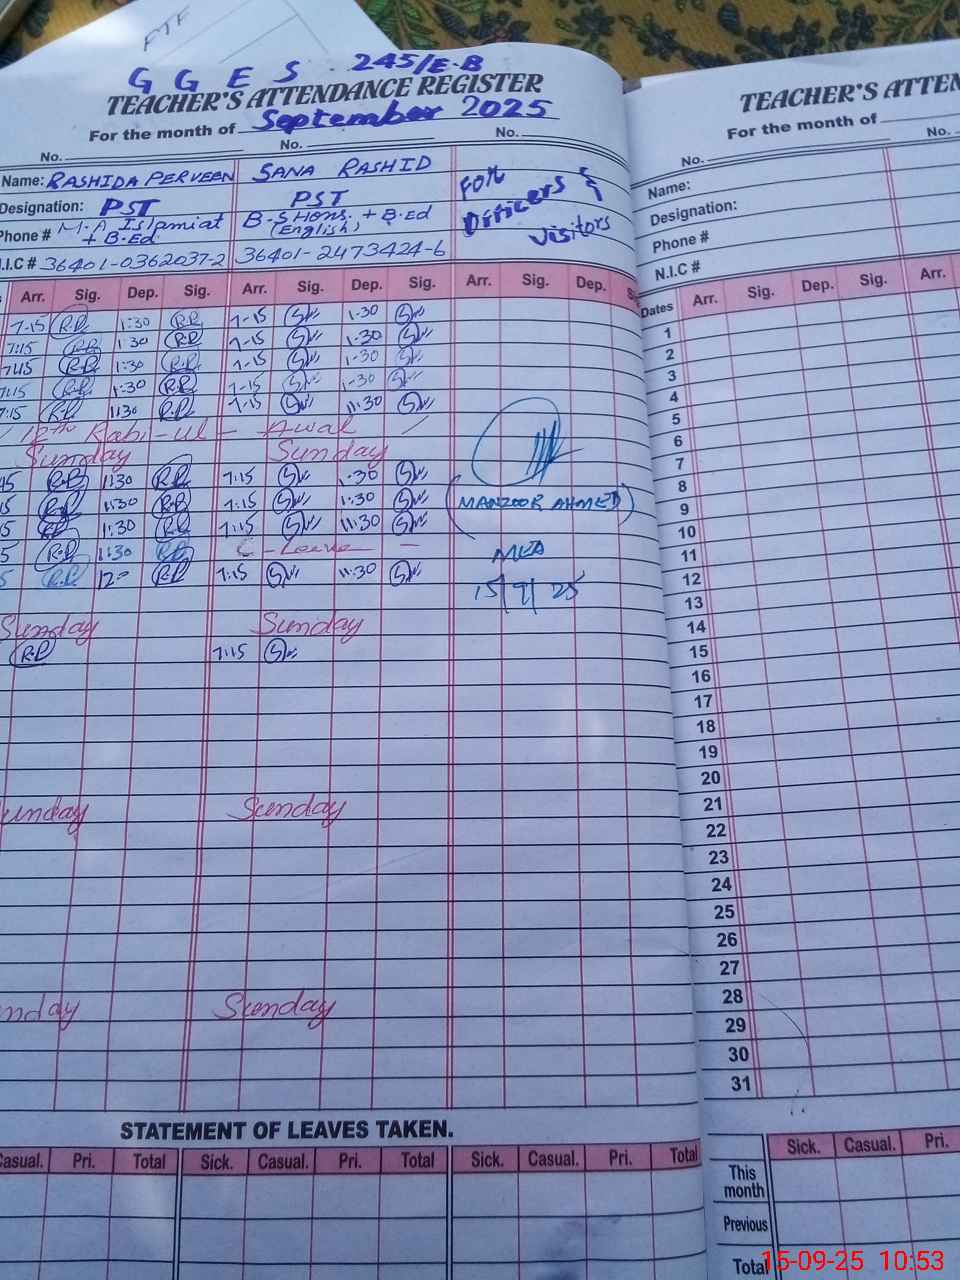 PTF
G G E S 245/E.B
TEACHER'S ATTENDANCE REGISTER
For the month of September 2025
No. No. No.
Name: RASHIDA PERVEEN SANA RASHID For
Designation: PST PST Officers &
Phone # M.A Islamiat + B.Ed B.S Hons. (English) + B.Ed Visitors
N.I.C # 36401-0362037-2 36401-2473424-6
Arr. Sig. Dep. Sig. Arr. Sig. Dep. Sig. Arr. Sig. Dep.
7-15 R.P 1:30 R.P 7-15 1-30
7:15 R.P 1:30 R.P 7-15 1-30
7:15 R.P 1:30 R.P 7-15 1-30
7:15 R.P 1:30 R.P 7-15 1-30
7:15 R.P 1:30 R.P 7-15 11:30
12th Rabi-ul-Awal
Sunday Sunday
45 R.P 1:30 R.P 7:15 1:30
15 R.P 1:30 R.P 7:15 1:30
15 R.P 1:30 R.P 7:15 11:30
5 R.P 1:30 R.P C-Leave
5 R.P 12:- R.P 7:15 11:30
MANZOOR AHMED
MEA
15/9/25
Sunday Sunday
R.P 7:15
unday Sunday
nday Sunday
STATEMENT OF LEAVES TAKEN.
Casual. Pri. Total Sick. Casual. Pri. Total Sick. Casual. Pri. Total
TEACHER'S ATTEN
For the month of
No. No.
Name:
Designation:
Phone #
N.I.C #
Dates Arr. Sig. Dep. Sig. Arr.
1
2
3
4
5
6
7
8
9
10
11
12
13
14
15
16
17
18
19
20
21
22
23
24
25
26
27
28
29
30
31
Sick. Casual. Pri.
This month
Previous
Total
15-09-25 10:53